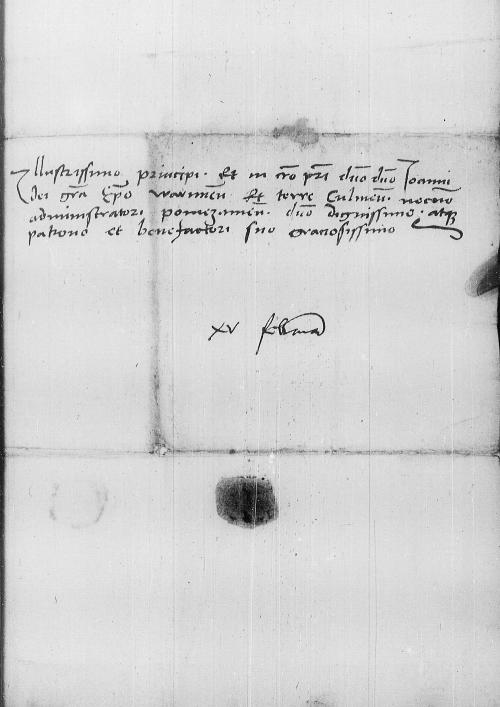 Illustrissimo principi. Et in cro pri dno dno Joanni
dei gra Epo warmien. Et terre Culmen. necno
administratori pomezanien. dno dignissimo. atq
patrono et benefactori suo graciosissimo
xv februarii